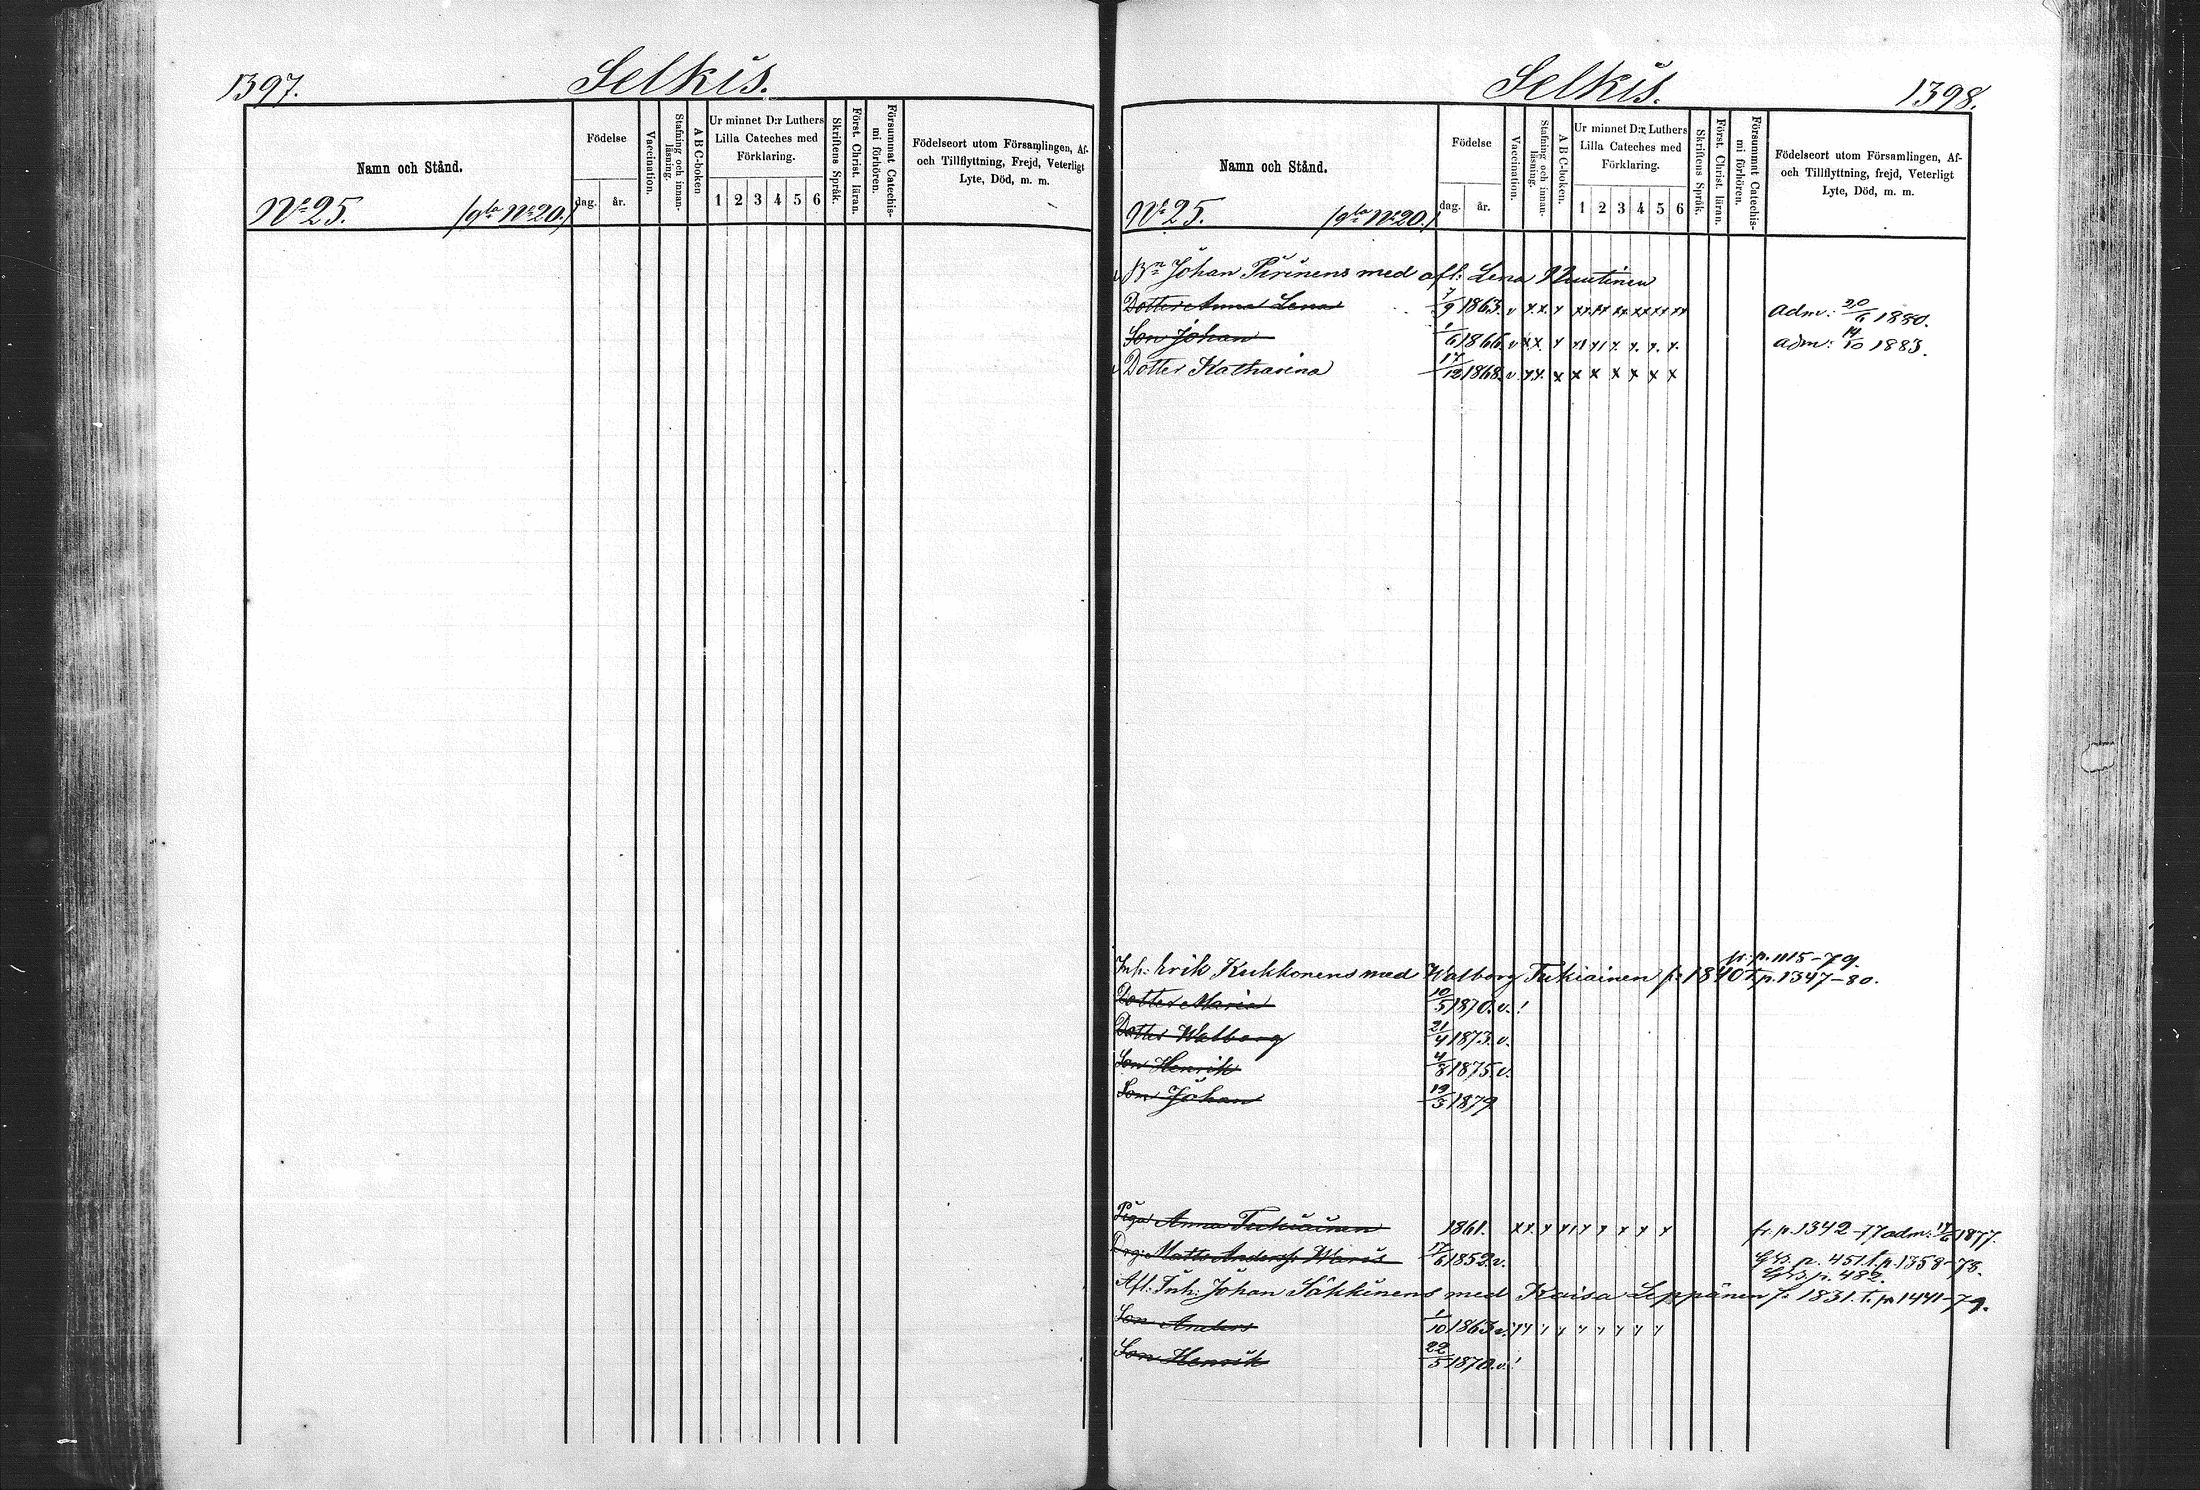 1397.
Selkis.
Namn och Stånd.
Födelse
dag.
år.
Vaccination.
Stafning och innanläsning.
A B C-boken
Ur minnet D:r Luthers
Lilla Cateches med
Förklaring.
1 2 3 4 5 6
Skriftens Språk.
Först. Christ. läran.
Försummat Catechismi förhören.
Födelseort utom Församlingen, Af-
och Tillflyttning, Frejd, Veterligt
Lyte, Död, m. m.
No 25. (gla No 20.)
Selkis.
1398.
Namn och Stånd.
Födelse
dag.
år.
Vaccination.
Stafning och innanläsning.
A B C-boken.
Ur minnet D:r Luthers
Lilla Cateches med
Förklaring.
1 2 3 4 5 6
Skriftens Språk.
Först. Christ. läran.
Försummt Catechismi förhören.
Födelseort utom Församlingen, Af-
och Tillflyttning, frejd, Veterligt
Lyte, Död, m. m.
No 25. (gla No 20.)
Bn Johan Pirinens med afl: Lena Nuutinen
Dotter Anna Lena 7/9 1863. v x.x. x xx xx xx xx xx xx adm: 20/6 1880.
Son Johan 1/6 1866. v xx. x x x x. x. x. x. adm: 14/10 1883.
Dotter Katharina 17/12 1868. v x.x. x x x x x x x
fr. p. 1115-79.
Inh: Erik Kukkonens med Walborg Tukiainen f: 1840 t. p. 1347-80.
Dotter Maria 10/5 1870. v. !
Dotter Walborg 21/4 1873. v.
Son Henrik 4/8 1875. v.
Son Johan 19/5 1879
Piga Anna Tukiainen 1861. x x. x x x x x x x fr. p. 1342-77 adm: 17/6 1877.
Drg: Matts Andersf. Waris 17/6 1852. v. GB. p. 451. t. p. 1358-78.
GB p. 482.
Afl: Inh: Johan Säkkinens med Kaisa Leppänen f: 1831. t. p. 1441-79.
Son Anders 1/10 1863 v. x x x x x x x x x
Son Henrik 22/5 1870. v. !